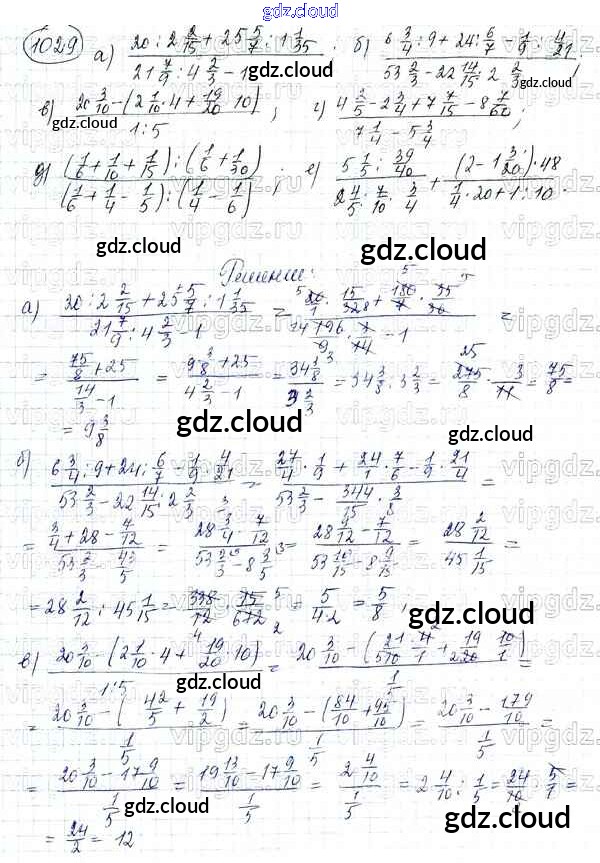 gdz.cloud
1029 а) (20 : 2 2/15 + 25 5/7 : 1 1/35) / (21 7/9 : 4 2/3 - 1) ; б) (6 3/4 : 9 + 24 : 6/7 - 1/9 : 4/21) / (53 2/3 - 22 14/15 : 2 2/3) ;
в) (20 3/10 - (2 1/10 · 4 + 19/20 · 10)) / (1 : 5) ; г) (4 2/5 - 2 3/4 + 7 7/15 - 8 7/60) / (7 1/4 - 5 3/4) ;
д) ((1/6 + 1/10 + 1/15) : (1/6 + 1/30)) / ((1/6 + 1/4 - 1/5) : (1/4 - 1/6)) ; е) (5 1/5 : 39/40) / (2 4/5 · 7/10 · 3/4) + ((2 - 1 3/20) · 48) / (1/4 · 20 + 1 : 10) .
gdz.cloud
Решение:
а) (20 : 2 2/15 + 25 5/7 : 1 1/35) / (21 7/9 : 4 2/3 - 1) =
= (75/8 + 25) / (14/3 - 1) = (9 3/8 + 25) / (4 2/3 - 1) = (34 3/8) / (3 2/3) = 34 3/8 : 3 2/3 = 275/8 · 3/11 = 75/8 =
= 9 3/8
gdz.cloud
б) (6 3/4 : 9 + 24 : 6/7 - 1/9 : 4/21) / (53 2/3 - 22 14/15 : 2 2/3) = (27/4 · 1/9 + 24/1 · 7/6 - 1/9 · 21/4) / (53 2/3 - 344/15 · 3/8) =
= (3/4 + 28 - 7/12) / (53 2/3 - 43/5) = (28 3/4 - 7/12) / (53 2/3 - 8 3/5) = (28 9/12 - 7/12) / (53 10/15 - 8 9/15) = (28 2/12) / (45 1/15) =
= 28 2/12 : 45 1/15 = 338/12 · 15/676 = 5/(4·2) = 5/8 ;
gdz.cloud
в) (20 3/10 - (2 1/10 · 4 + 19/20 · 10)) / (1 : 5) = (20 3/10 - (21/10 · 4/1 + 19/20 · 10/1)) / (1/5) =
= (20 3/10 - (42/5 + 19/2)) / (1/5) = (20 3/10 - (84/10 + 95/10)) / (1/5) = (20 3/10 - 179/10) / (1/5) =
= (20 3/10 - 17 9/10) / (1/5) = (19 13/10 - 17 9/10) / (1/5) = (2 4/10) / (1/5) = 2 4/10 : 1/5 = 24/10 · 5/1 =
= 24/2 = 12
gdz.cloud